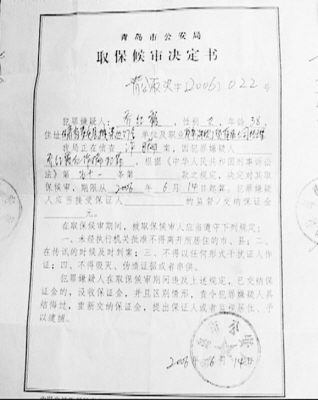 青岛市公安局
取保候审决定书
字(2006)022号
犯罪嫌疑人: 性别 女,年龄 38,
住址 单位及职业
我局正在侦查 案,因犯罪嫌疑人
,根据《中华人民共和国刑事诉讼
法》第五十一条第 款之规定,决定对其取
保候审,期限从2006年6月14日起算。犯罪嫌疑
人应当接受保证人 的监督/交纳保证金
元。
在取保候审期间,被取保候审人应当遵守下列规定:
一、未经执行机关批准不得离开所居住的市、县;二、
在传讯的时候及时到案;三、不得以任何形式干扰证人作
证;四、不得毁灭、伪造证据或者串供。
犯罪嫌疑人在取保候审期间违反上述规定,已交纳保
证金的,没收保证金,并且区别情形,责令犯罪嫌疑人具
结悔过,重新交纳保证金、提出保证人或者监视居住、予
以逮捕。
2006年6月14日